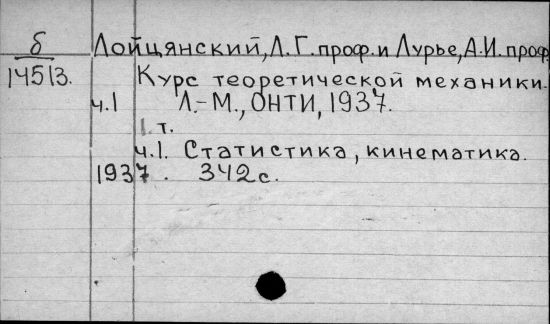 б Лойцянский, Л.Г. проф. и Лурье, А.И. проф.
14513. Курс теоретической механики.
ч.1 Л.-М., ОНТИ, 1937.
1 т.
ч.1. Статистика, кинематика.
1937. 342 с.